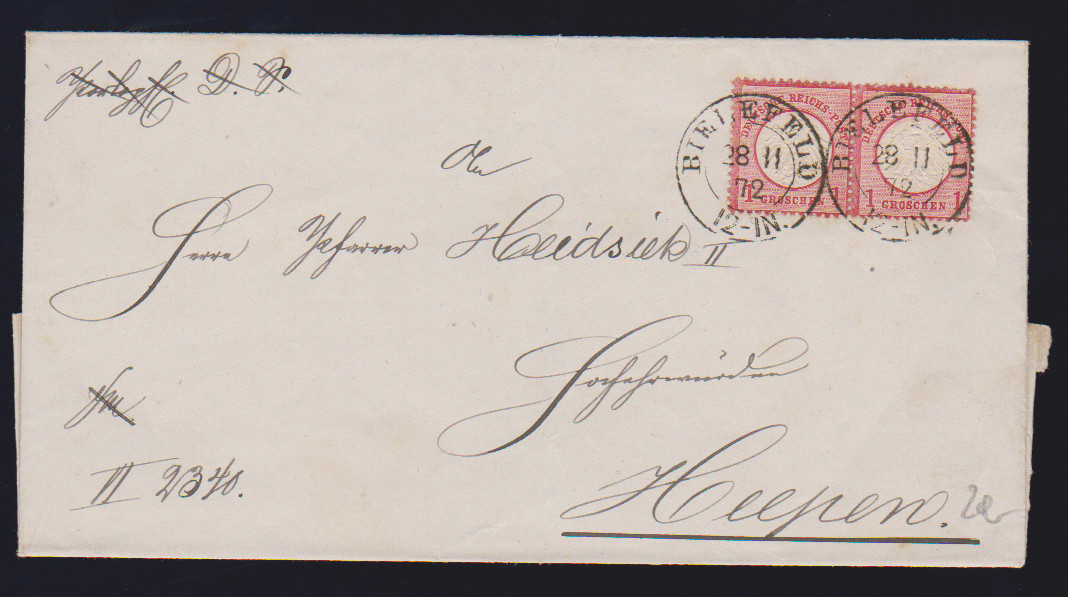 Portopfl. D. S.
An
Herrn Pfarrer Heidsiek II
Hochehrwürden
Heepen.
III 2340.
DEUTSCHE REICHS-POST
1 GROSCHEN
DEUTSCHE REICHS-POST
1 GROSCHEN 1
BIELEFELD
28 11
72
12-1N.
BIELEFELD
28 11
72
12-1N.